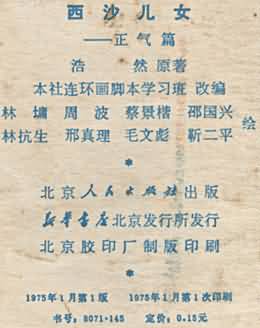 西沙儿女
——正气篇
浩然 原著
本社连环画脚本学习班 改编
林墉 周波 蔡景楷 邵国兴
林抗生 邢真理 毛文彪 靳二平 绘
*
北京人民出版社出版
新华书店北京发行所发行
北京胶印厂制版印刷
*
1975年1月第1版 1975年1月第1次印刷
书号：8071·145 定价：0.15元